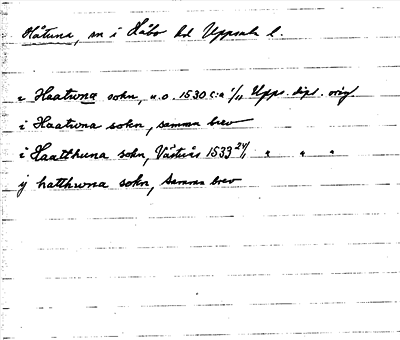 Håtuna, sn i Håbo hd Uppsala l.
i Haatwna sokn, u.o. 1530 c:a 1/11 Upps. dipl. orig.
i Haatwna sokn, samma brev
i Haatthuna sokn, Västerås 1539 24/1 " " "
ij hatthwna sokn, samma brev